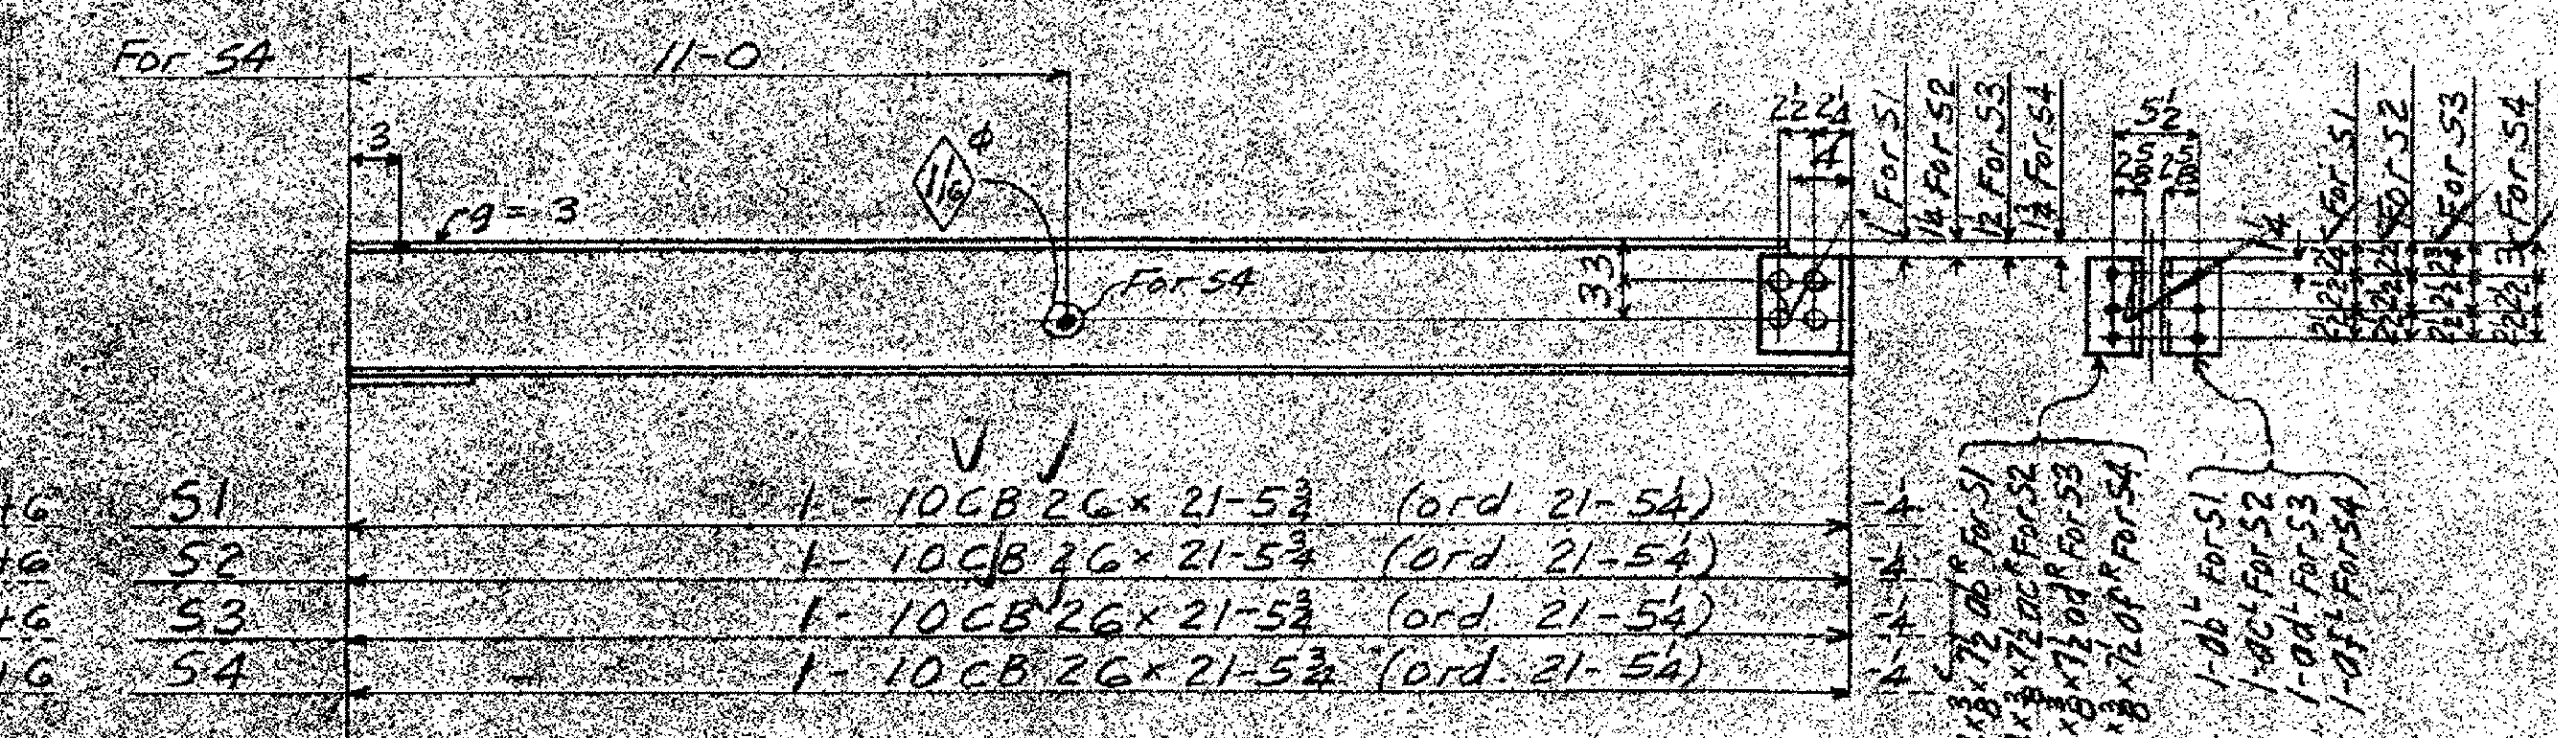 For S4
11-0
3
g = 3
11/16 φ
For S4
3 3
2½ 2¼
4
1" For S1
1¼ For S2
1½ For S3
1¾ For S4
5½
2⅝ 2⅝
¼
For S1
For S2
For S3
For S4
2¼ 2½ 2½
2½ 2½ 2½
2¾ 2½ 2½
3 2½ 2½
+6 S1 1 - 10 CB 26 x 21-5¾ (ord. 21-5¼) -¼
+6 S2 1 - 10 CB 26 x 21-5¾ (ord. 21-5¼) -¼
+6 S3 1 - 10 CB 26 x 21-5¾ (ord. 21-5¼) -¼
+6 S4 1 - 10 CB 26 x 21-5¾ (ord. 21-5¼) -¼
x ⅜ x 7½ ab R For S1
x ⅜ x 7½ ac R For S2
x ⅜ x 7½ ad R For S3
x ⅜ x 7½ af R For S4
1-ab L For S1
1-ac L For S2
1-ad L For S3
1-af L For S4